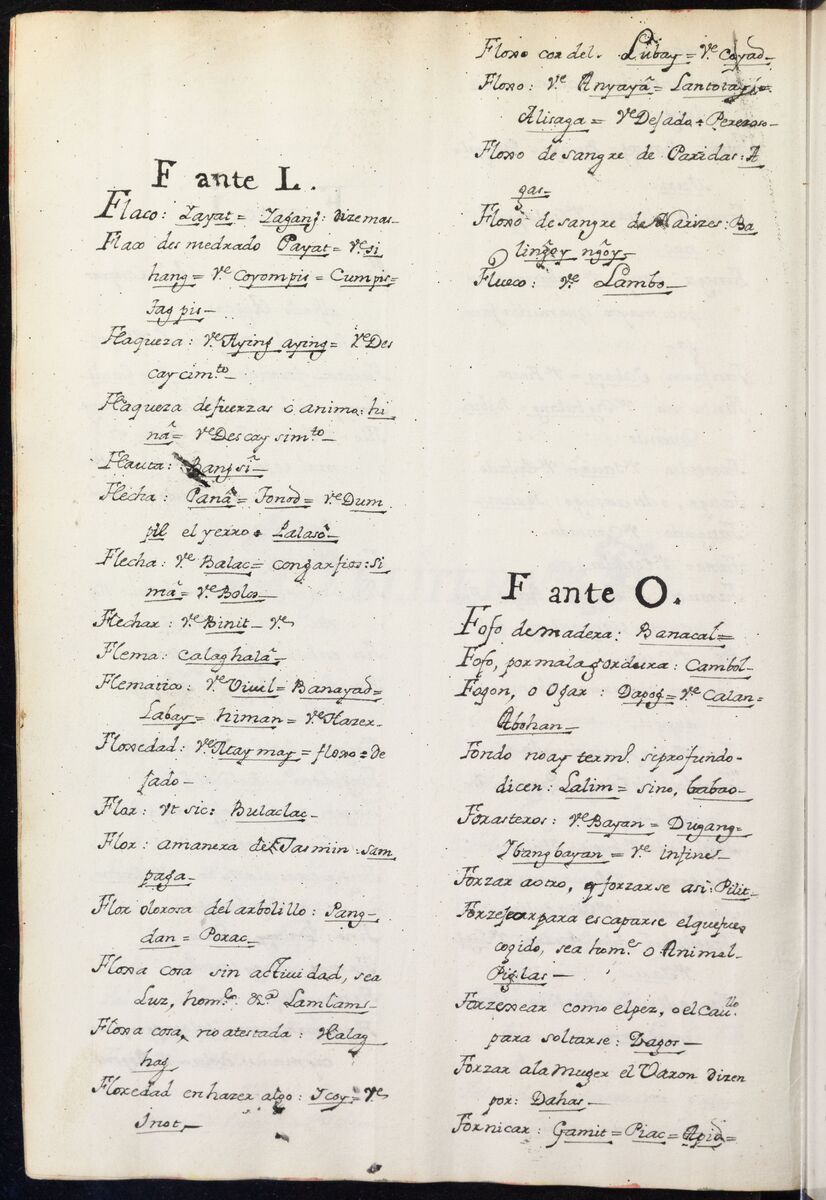 F ante L.
Flaco: Payat = Yagang: dizemas_
Flaco desmedrado Payat = Ve. si
hang = Ve Coyompis = Cumpis =
Tagpis _
Flaqueza: Ve. Aying aying = Ve Des
caycimto _
Flaqueza defuerzas o animo: hi
nã = Ve Descaysimto _
Flauta: Bangsĩ _
Flecha: Panã = Tonod = Ve Dum
pil el yerro = Lalasõ _
Flecha: Ve Balac = congarfios: si
mã = Ve Bolos _
Flechar: Ve Binit _ Ve
Flema: Calaghalã _
Flematico: Ve Vivil = Banayad =
Labay = himan = Ve Hazer _
Floxedad: Ve May may = floxo = de
jado _
Flor: Vt sic: Bulaclac _
Flor: amanera de Jasmin: sam
paga _
Flor olorosa del arbolillo: Pang_
dan = Porac _
Floxa cosa sin actiuidad, sea
Luz, home. &a. Lamlams _
Floxa cosa, no atestada: Halag
hag
Floxedad enhazer algo: Icoy = Ve
Inot _
Floxo cordel. Lũbay = Ve Coyad _
Floxo: Ve Anyayã = Lantotay =
Alisaga = Ve Dejado = Perezoso _
Floxo de sangre de Paridas: A
gas _
Floxo de sangre de Narizes: Ba
lingoy ngõy _
Flueco: Ve Lambo _
F ante O.
Fofo demadera: Banacal =
Fofo, pormalagordura: Cambol _
Fogon, o Ogar: Dapog = Ve Calan =
Abohan _
Fondo noay termo. seprofundo _
dicen: Lalim = sino, babao _
Forasteros: Ve Bayan = Dugang =
Ybangbayan = Ve infines _
Forzar aotro, y forzarse asi: Pilit _
Forzejear para escaparse elquefue
cogido, sea home o Animal _
Piglas _
Forzexear como elpez, o el Cauallo.
para soltarse: Dagos _
Forzar ala Muger el Varon dizen
por: Dahas _
Fornicar: Gamit = Piac = Apid =